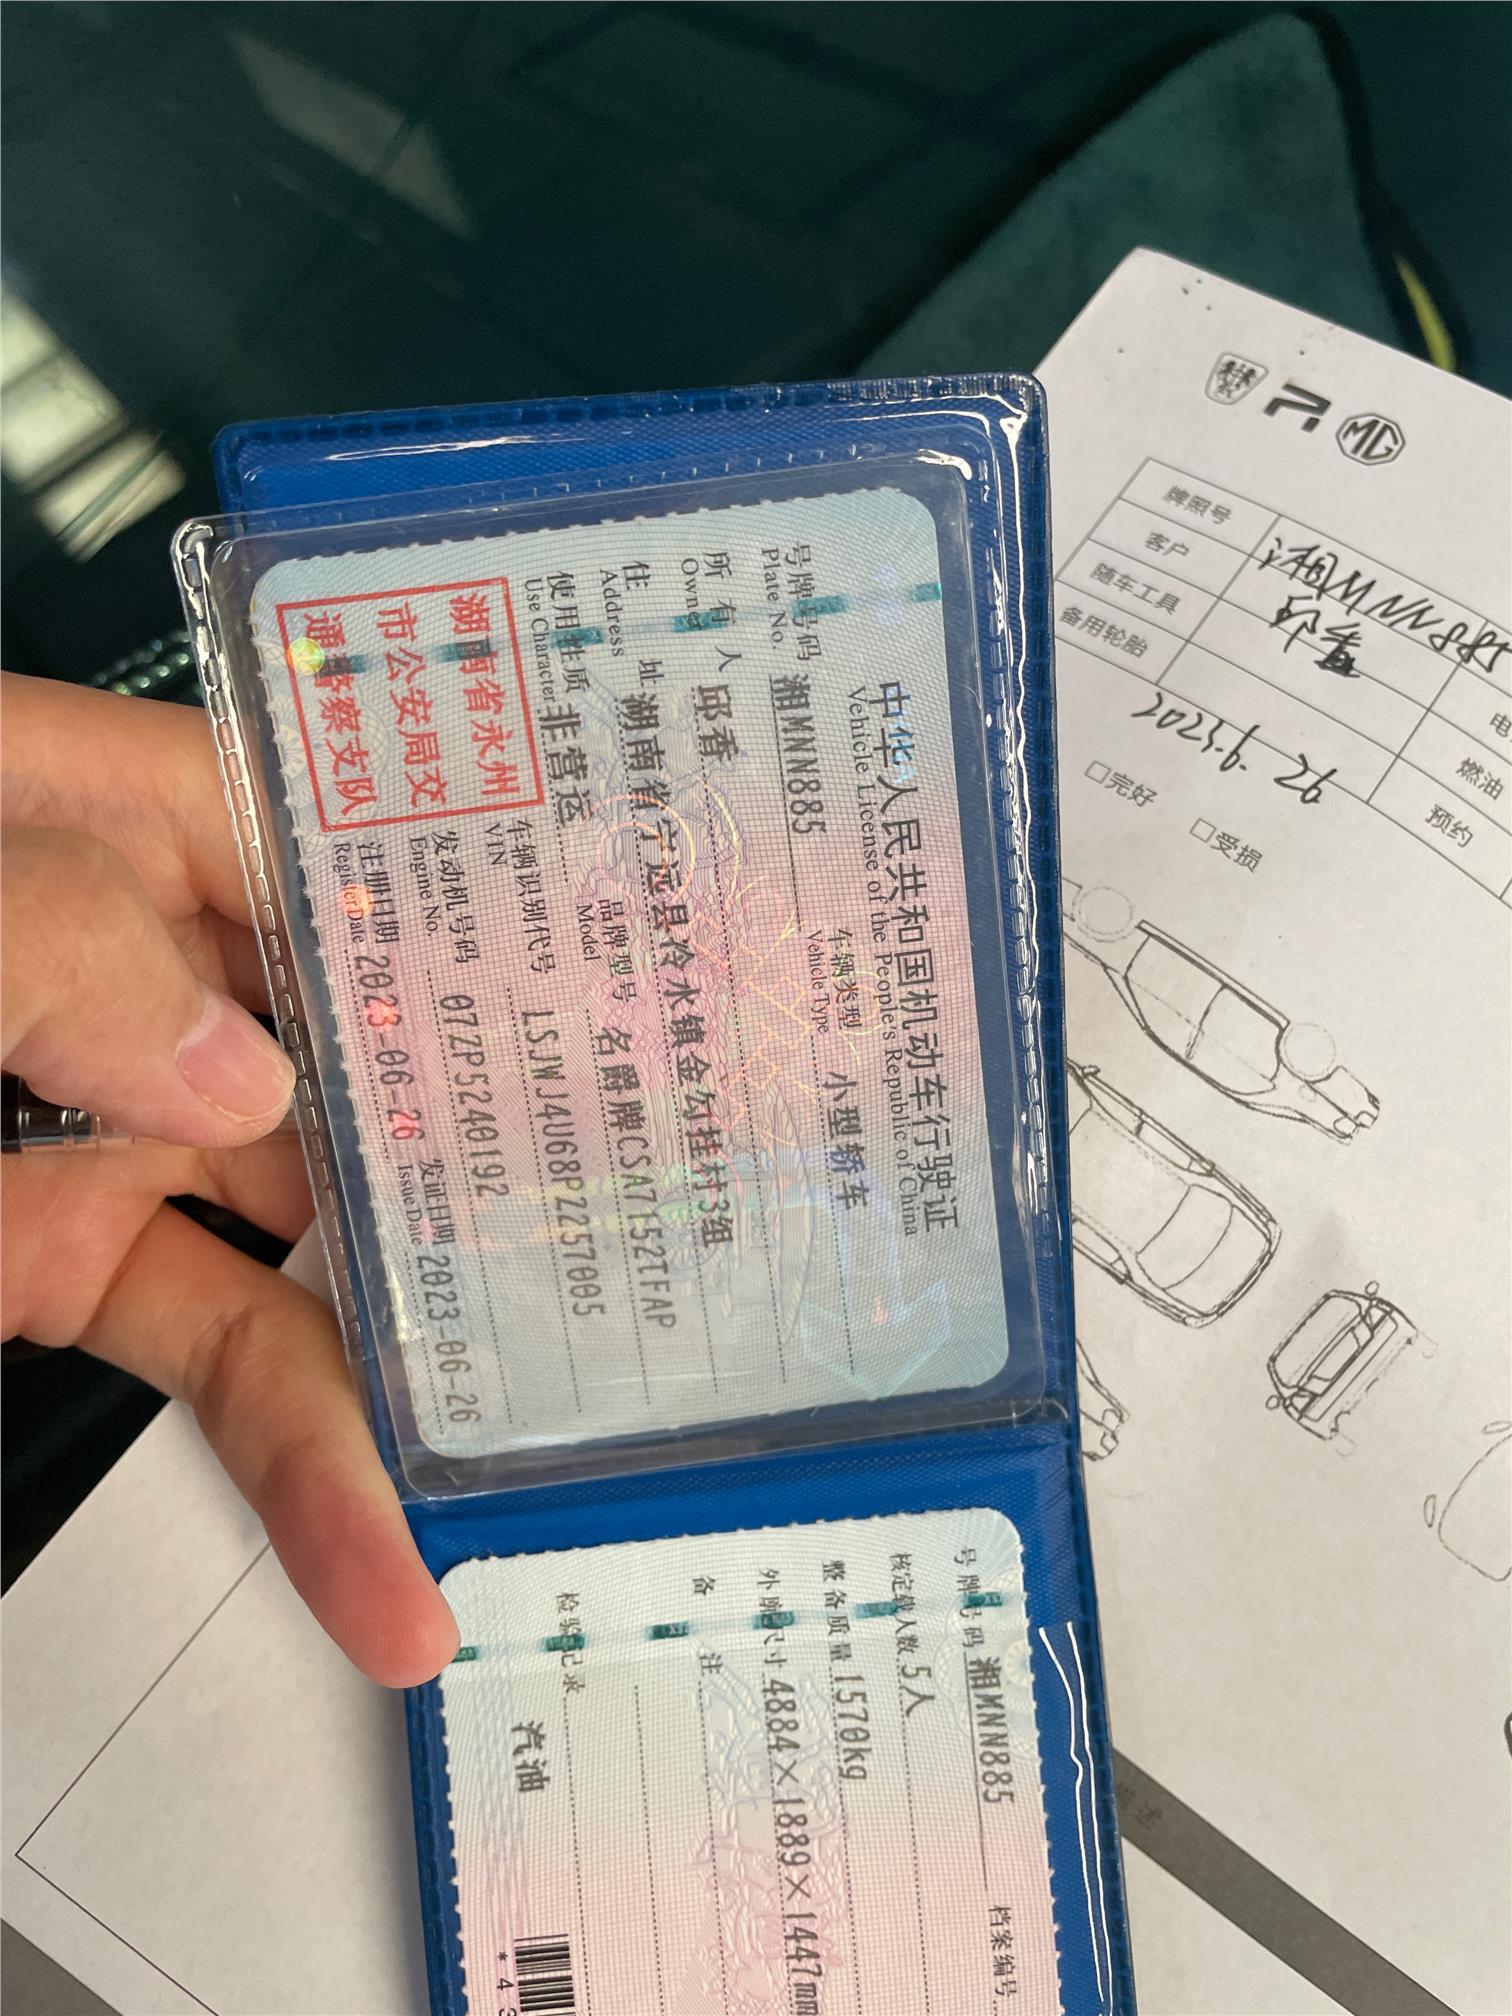 中华人民共和国机动车行驶证
Vehicle License of the People's Republic of China
号牌号码 湘MNN885 车辆类型 小型轿车
Plate No. Vehicle Type
所有人 邱香
Owner
住址 湖南省宁远县冷水镇金勾挂村3组
Address
使用性质 非营运 品牌型号 名爵牌CSA7152TFAP
Use Character Model
湖南省永州
市公安局交
通警察支队
车辆识别代号 LSJWJ4U68P2257005
VIN
发动机号码 07ZP5240192
Engine No.
注册日期 2023-06-26 发证日期 2023-06-26
Register Date Issue Date
号牌号码 湘MNN885 档案编号
核定载人数 5人
整备质量 1570kg
外廓尺寸 4884×1889×1447mm
备注
检验记录
汽油
*43
MG
牌照号
客户
随车工具
备用轮胎
电
燃油
预约
2023.9.26
□完好 □受损
描述